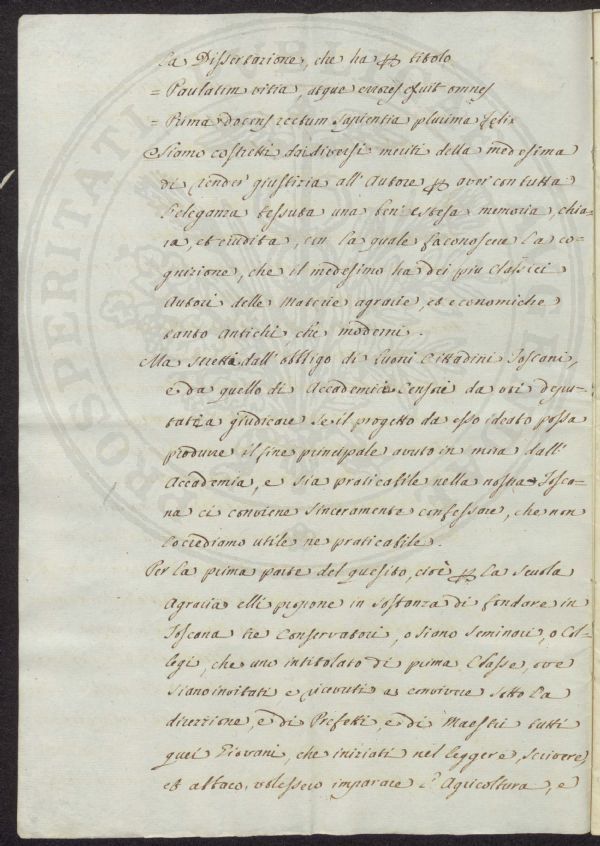 La Dissertazione, che ha per titolo
= Paulatim vitia, atque errores exuit omnes
= Prima docens rectum sapientia plurima felix
Siamo costretti dai diversi meriti della medesima
di render giustizia all'Autore per aver con tutta
l'eleganza tessuta una ben estesa memoria, chia=
ra, et erudita, con la quale fa conoscere la co=
gnizione, che il medesimo ha dei più Classici
Autori delle Materie agrarie, et economiche
tanto Antichi, che moderni.
Ma stretti dall'obbligo di buoni Cittadini Toscani,
e da quello di Accademici Censori da voi depu=
tati a giudicare se il progetto da esso ideato possa
produrre il fine principale avuto in mira dall'
Accademia, e sia praticabile nella nostra Tosca=
na ci conviene sinceramente confessare, che non
lo crediamo utile ne praticabile.
Per la prima parte del quesito, cioè per la Scuola
Agraria elli propone in sostanza di fondare in
Toscana tre Conservatori, o siano Seminari, o Col=
legi, che uno intitolato di prima Classe, ove
siano invitati e ricevuti a convivere sotto la
direzzione, e di Prefetti, e di Maestri tutti
quei Giovani, che iniziati nel leggere, scrivere,
et abbaco, volessero imparare l'Agricoltura, e
PROSPERITATI